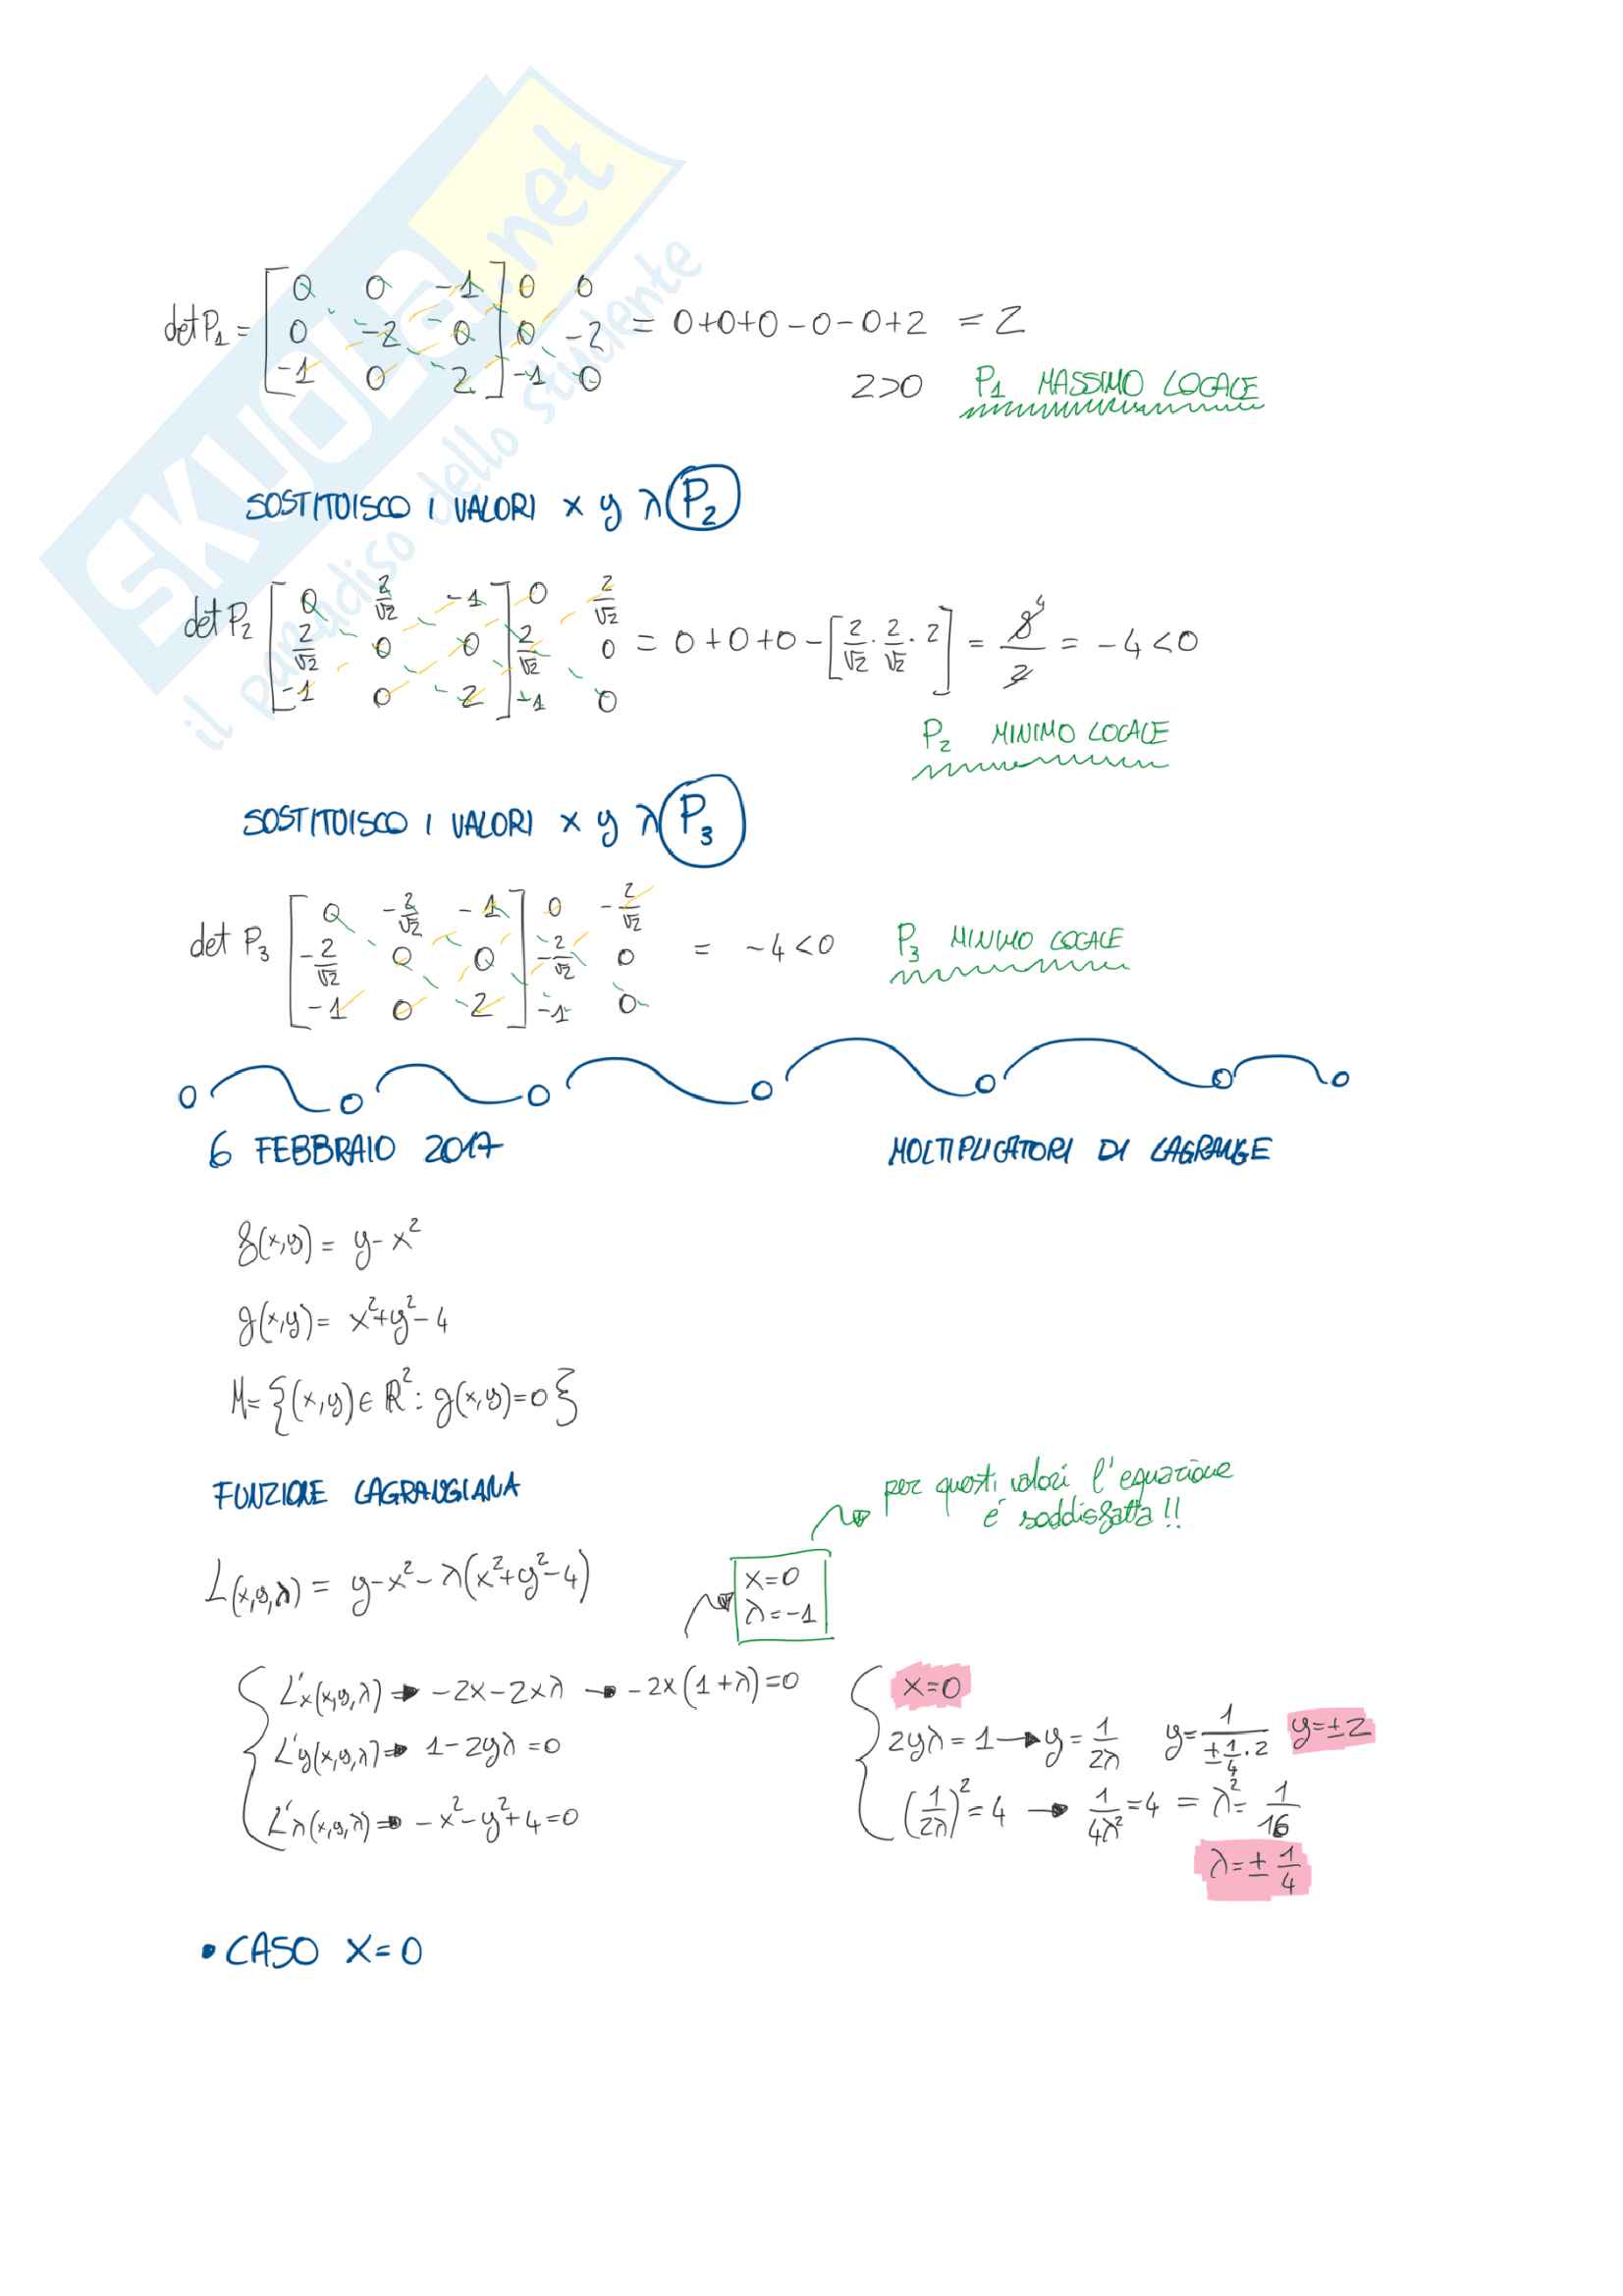 SKUOLA.net
il paradiso dello studente
det P₁ = [ 0 0 -1 ] 0 0
[ 0 -2 0 ] 0 -2 = 0+0+0-0-0+2 = 2
[ -1 0 2 ] -1 0
2>0 P₁ MASSIMO LOCALE
SOSTITUISCO I VALORI x y λ P₂
det P₂ [ 0 2/√2 -1 ] 0 2/√2
[ 2/√2 0 0 ] 2/√2 0 = 0+0+0-[2/√2 · 2/√2 · 2] = 8/2 = -4<0
[ -1 0 2 ] -1 0
P₂ MINIMO LOCALE
SOSTITUISCO I VALORI x y λ P₃
det P₃ [ 0 -2/√2 -1 ] 0 -2/√2
[ -2/√2 0 0 ] -2/√2 0 = -4<0 P₃ MINIMO LOCALE
[ -1 0 2 ] -1 0
6 FEBBRAIO 2017 MOLTIPLICATORI DI LAGRANGE
f(x,y) = y-x²
g(x,y) = x²+y²-4
M={(x,y)∈R²: g(x,y)=0}
FUNZIONE LAGRANGIANA
per questi valori l'equazione
é soddisfatta!!
L(x,y,λ) = y-x²-λ(x²+y²-4)
x=0
λ=-1
L'x(x,y,λ) → -2x-2xλ → -2x(1+λ)=0
L'y(x,y,λ) → 1-2yλ=0
L'λ(x,y,λ) → -x²-y²+4=0
x=0
2yλ=1 → y=1/2λ y=1/(±1/4·2) y=±2
(1/2λ)²=4 → 1/4λ²=4 = λ²=1/16
λ=±1/4
• CASO X=0